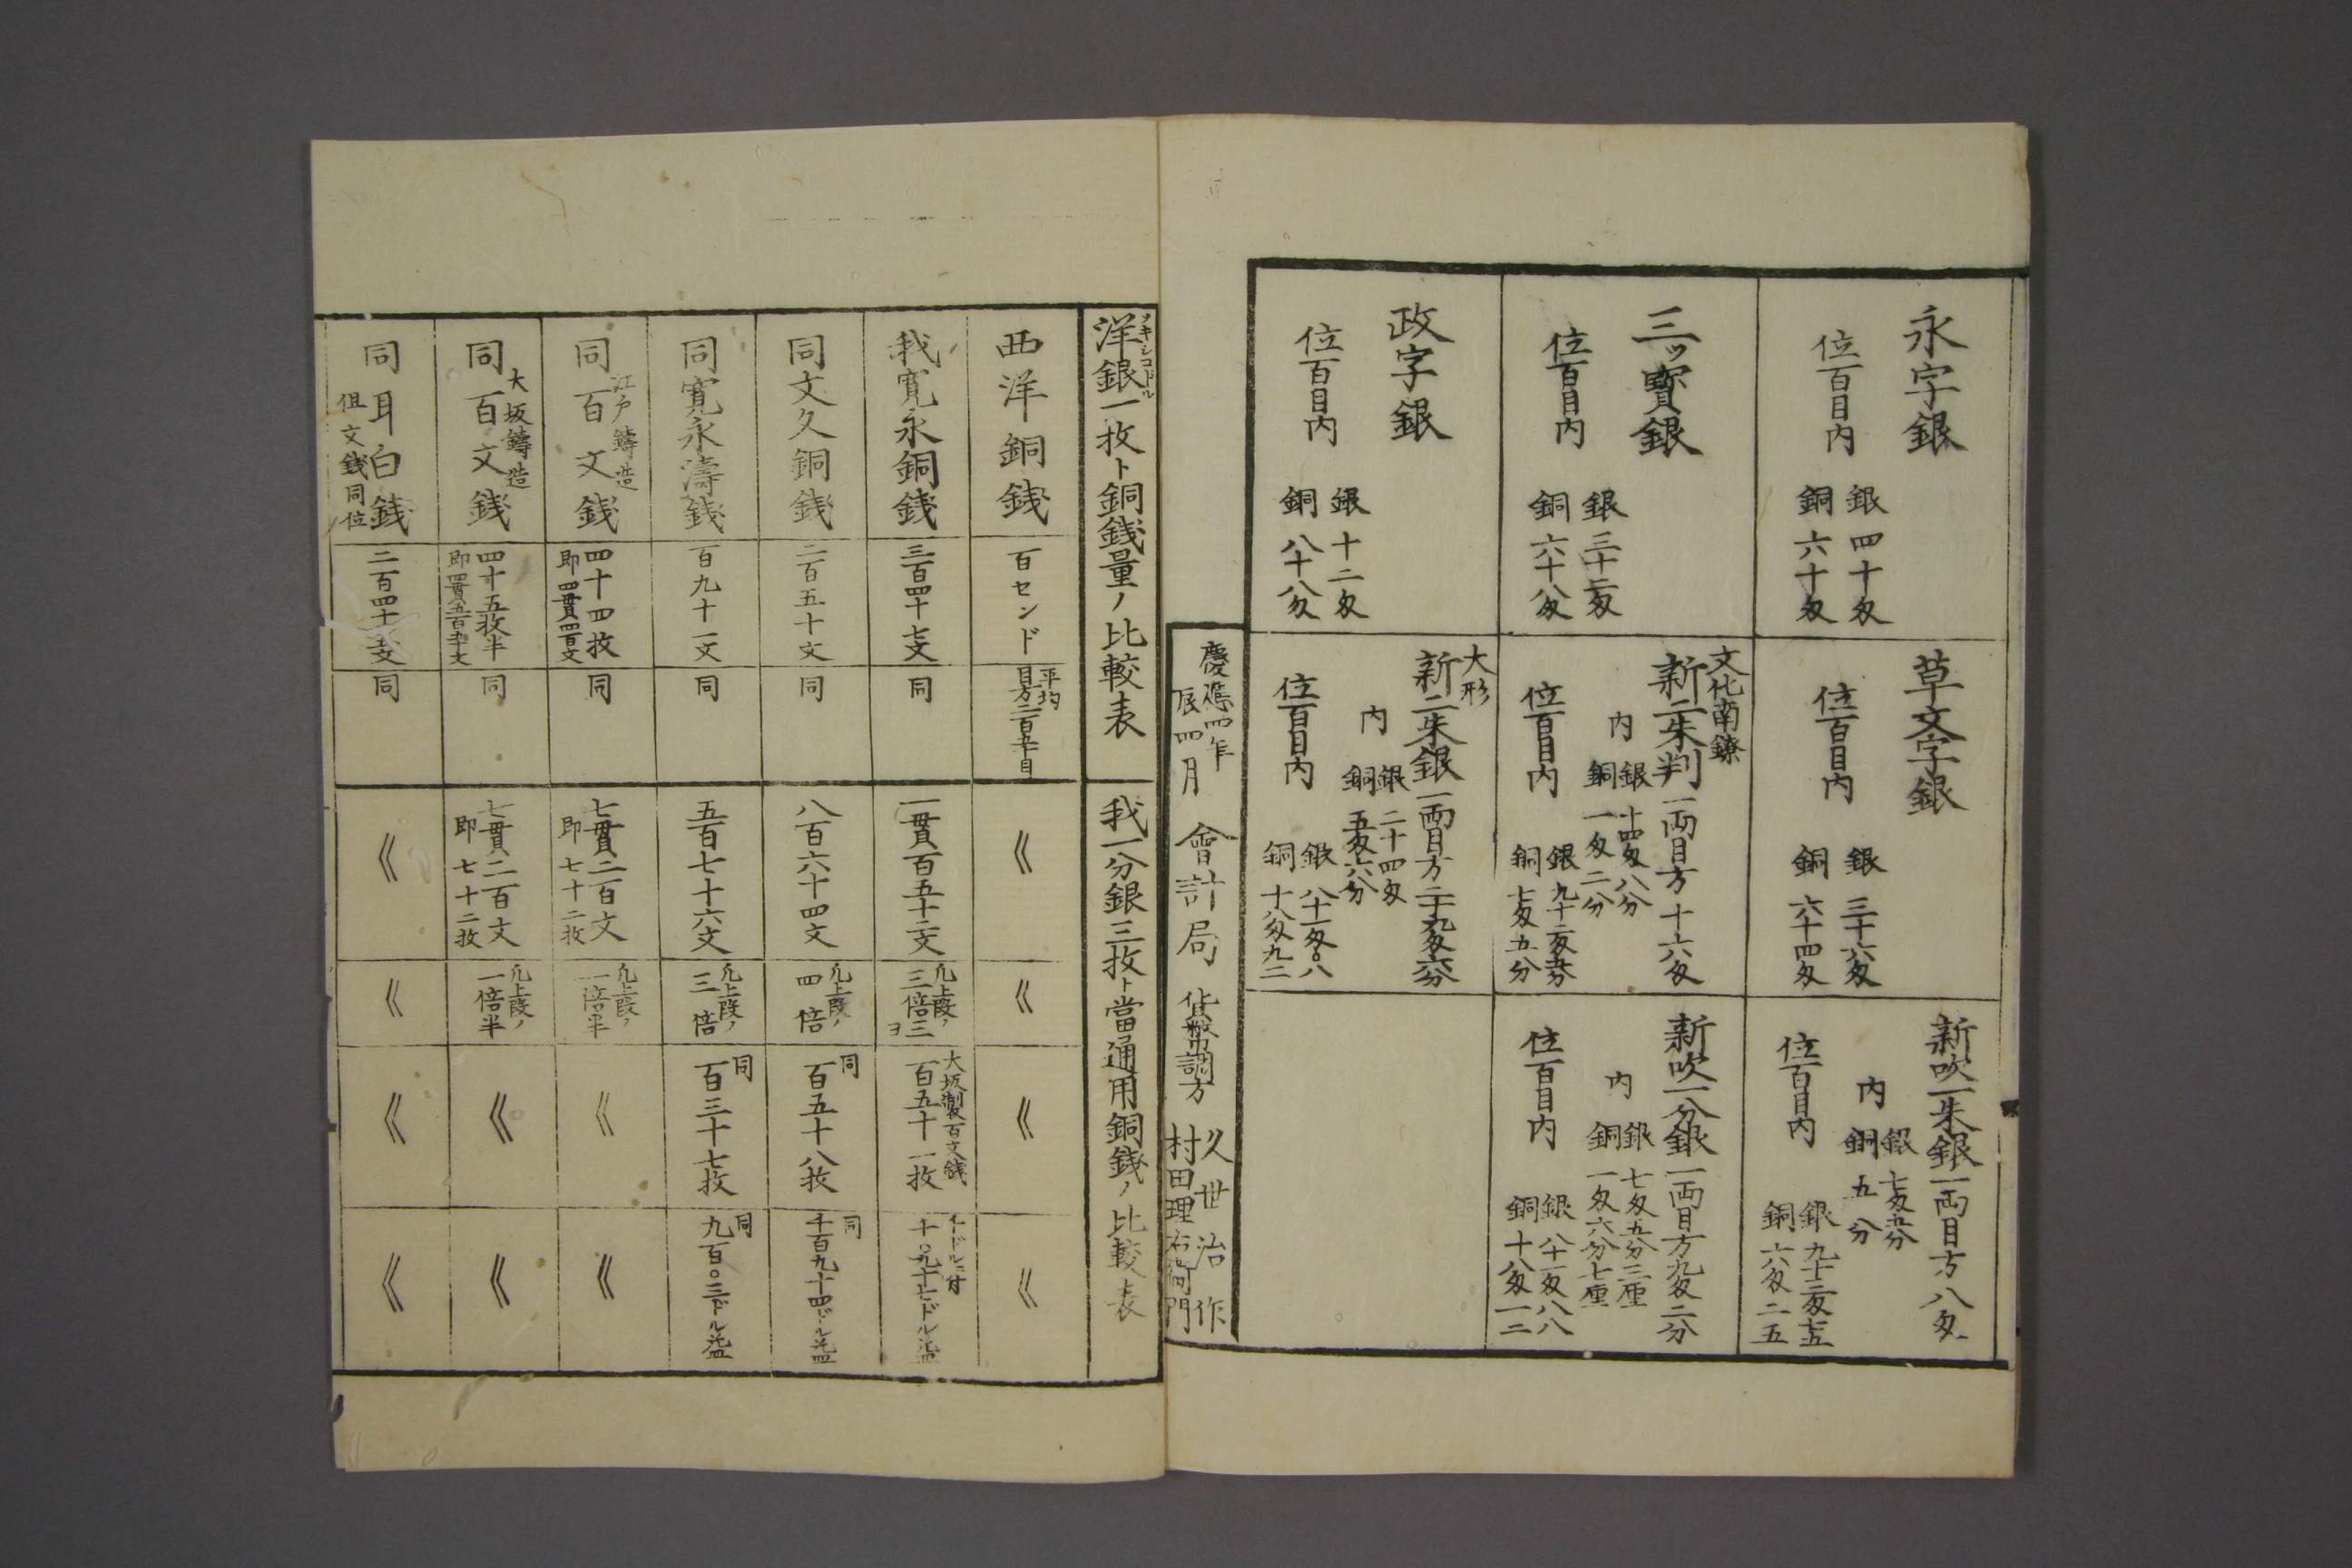 永字銀
位百目内
銀 四十匁
銅 六十匁
草文字銀
位百目内
銀 三十六匁
銅 六十四匁
新吹一朱銀 一両目方八匁
内
銀 七匁五分
銅 五分
位百目内
銀 九十三匁七五
銅 六匁二五
三ッ寶銀
位百目内
銀 三十二匁
銅 六十八匁
文化南鐐
新二朱判 一両目方十六匁
内
銀 十四匁八分
銅 一匁二分
位百目内
銀 九十二匁五分
銅 七匁五分
新吹一分銀 一両目方九匁二分
内
銀 七匁五分三厘
銅 一匁六分七厘
位百目内
銀 八十一匁八八
銅 十八匁一二
政字銀
位百目内
銀 十二匁
銅 八十八匁
大形
新二朱銀 一両目方二十九匁六分
内
銀 二十四匁
銅 五匁六分
位百目内
銀 八十一匁〇八
銅 十八匁九二
慶應四年
辰四月
會計局 貨幣調方
久世治作
村田理右衛門
メキシコドル
洋銀一枚ト銅銭量ノ比較表
我一分銀三枚ト當通用銅銭ノ比較表
西洋銅銭
百センド
平均
目方二百五十目
《
《
《
《
我寛永銅銭
三百四十七文
同
一貫百五十二文
凡上段ノ
三倍三
ヨ
大坂製百文銭
百五十一枚
千ドルニ付
千〇九十七ドル益
同文久銅銭
二百五十文
同
八百六十四文
凡上段ノ
四倍
同
百五十八枚
同
千百九十四ドル益
同寛永濤銭
百九十一文
同
五百七十六文
凡上段ノ
三倍
同
百三十七枚
同
九百〇三ドル益
江戸鑄造
同百文銭
四十四枚
即四貫四百文
同
七貫二百文
即七十二枚
凡上段ノ
一倍半
《
《
大坂鑄造
同百文銭
四十五枚半
即四貫五百五十文
同
七貫二百文
即七十二枚
凡上段ノ
一倍半
《
《
同耳白銭
但文銭同位
二百四十五文
同
《
《
《
《